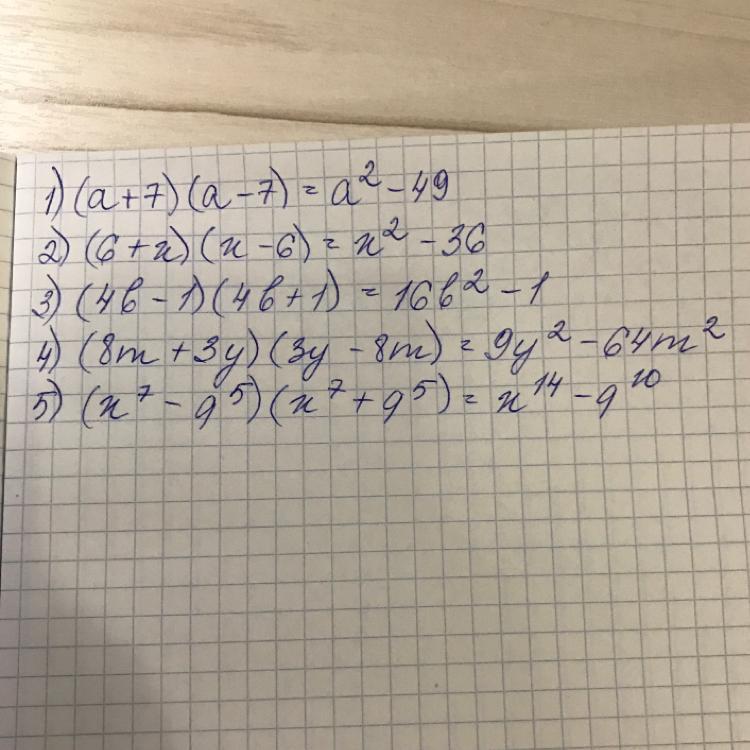 1) (a+7)(a-7) = a² - 49
2) (6+x)(x-6) = x² - 36
3) (4b-1)(4b+1) = 16b² - 1
4) (8m+3y)(3y-8m) = 9y² - 64m²
5) (x⁷-g⁵)(x⁷+g⁵) = x¹⁴ - g¹⁰